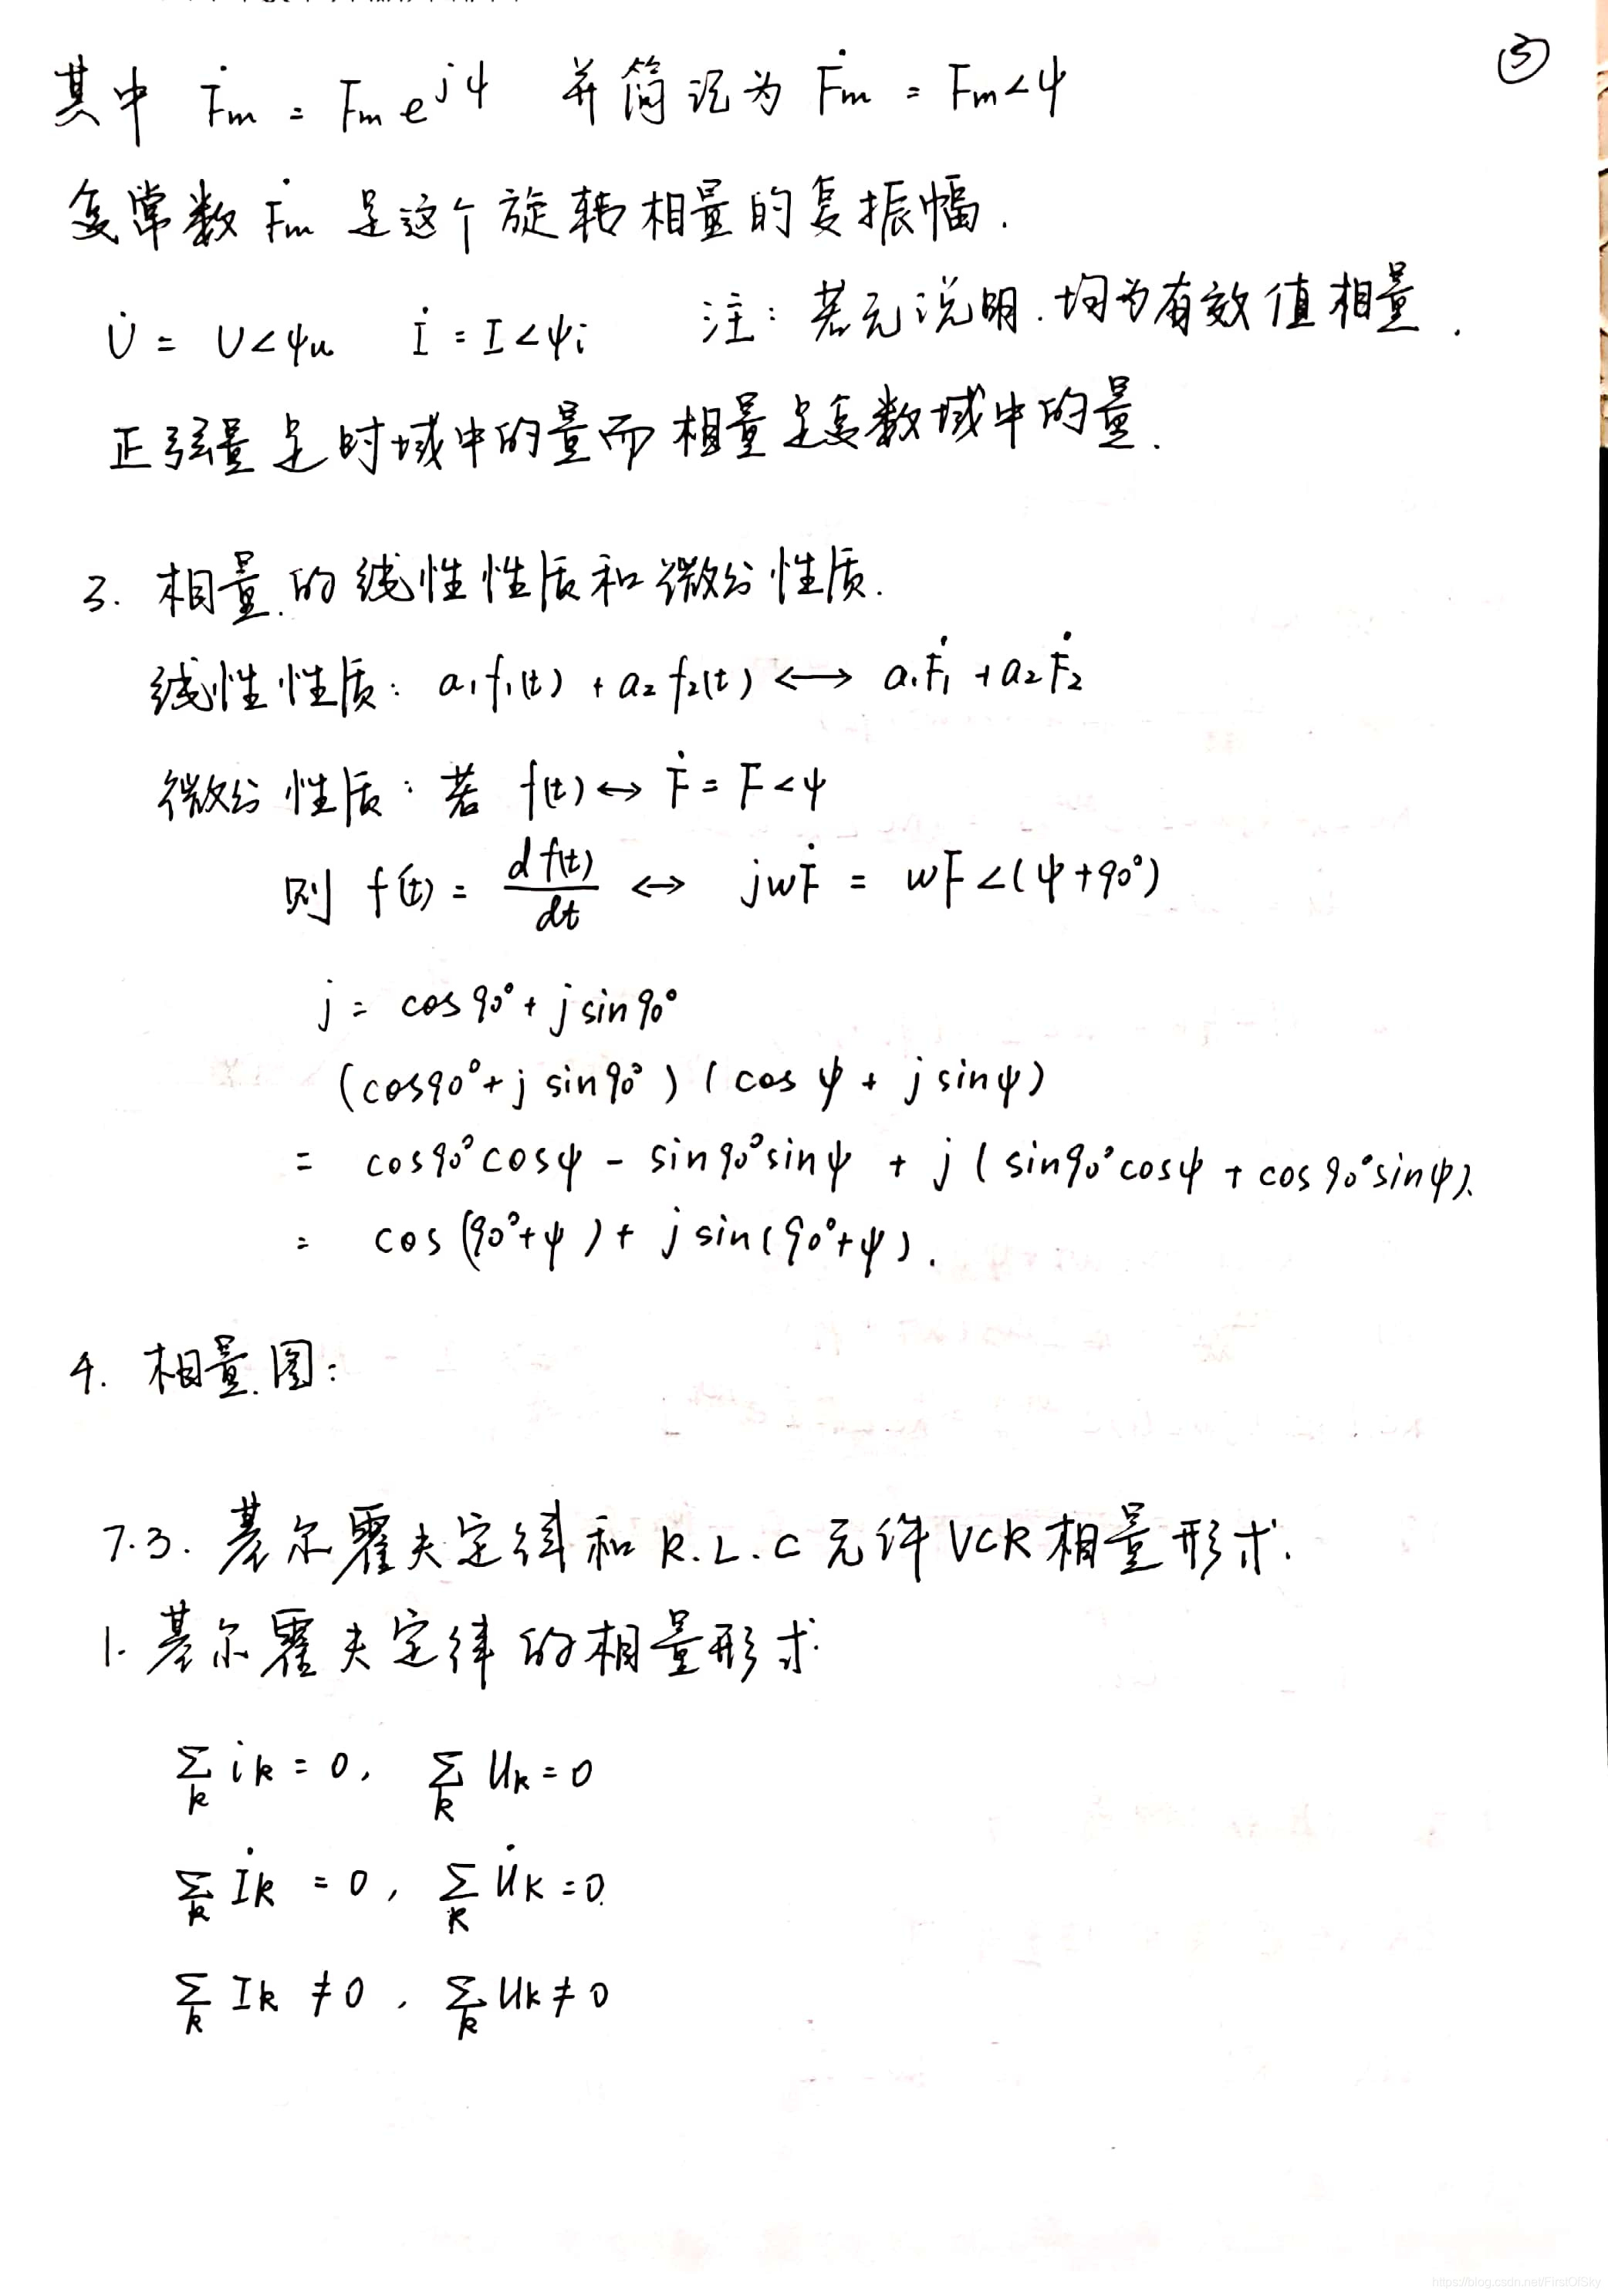 ⑤
其中 Ḟm = Fm e^{jψ} 并简记为 Ḟm = Fm∠ψ
复常数 Ḟm 是这个旋转相量的复振幅.
U̇ = U∠ψu  İ = I∠ψi  注: 若无说明.均为有效值相量.
正弦量是时域中的量而相量是复数域中的量.
3. 相量的线性性质和微分性质.
线性性质: a₁f₁(t) + a₂f₂(t) ⟷ a₁Ḟ₁ + a₂Ḟ₂
微分性质: 若 f(t) ↔ Ḟ = F∠ψ
则 f(t) = \frac{d f(t)}{dt} ↔ jwḞ = wF∠(ψ+90°)
j = cos90° + j sin90°
(cos90° + j sin90°)(cosψ + j sinψ)
= cos90°cosψ - sin90°sinψ + j(sin90°cosψ + cos90°sinψ).
= cos(90°+ψ) + j sin(90°+ψ).
4. 相量图:
7.3. 基尔霍夫定律和 R.L.C 元件 VCR 相量形式.
1. 基尔霍夫定律的相量形式
∑_k i_k = 0, ∑_k u_k = 0
∑_k İ_k = 0, ∑_k U̇_k = 0
∑_k I_k ≠ 0, ∑_k U_k ≠ 0
https://blog.csdn.net/FirstOfSky